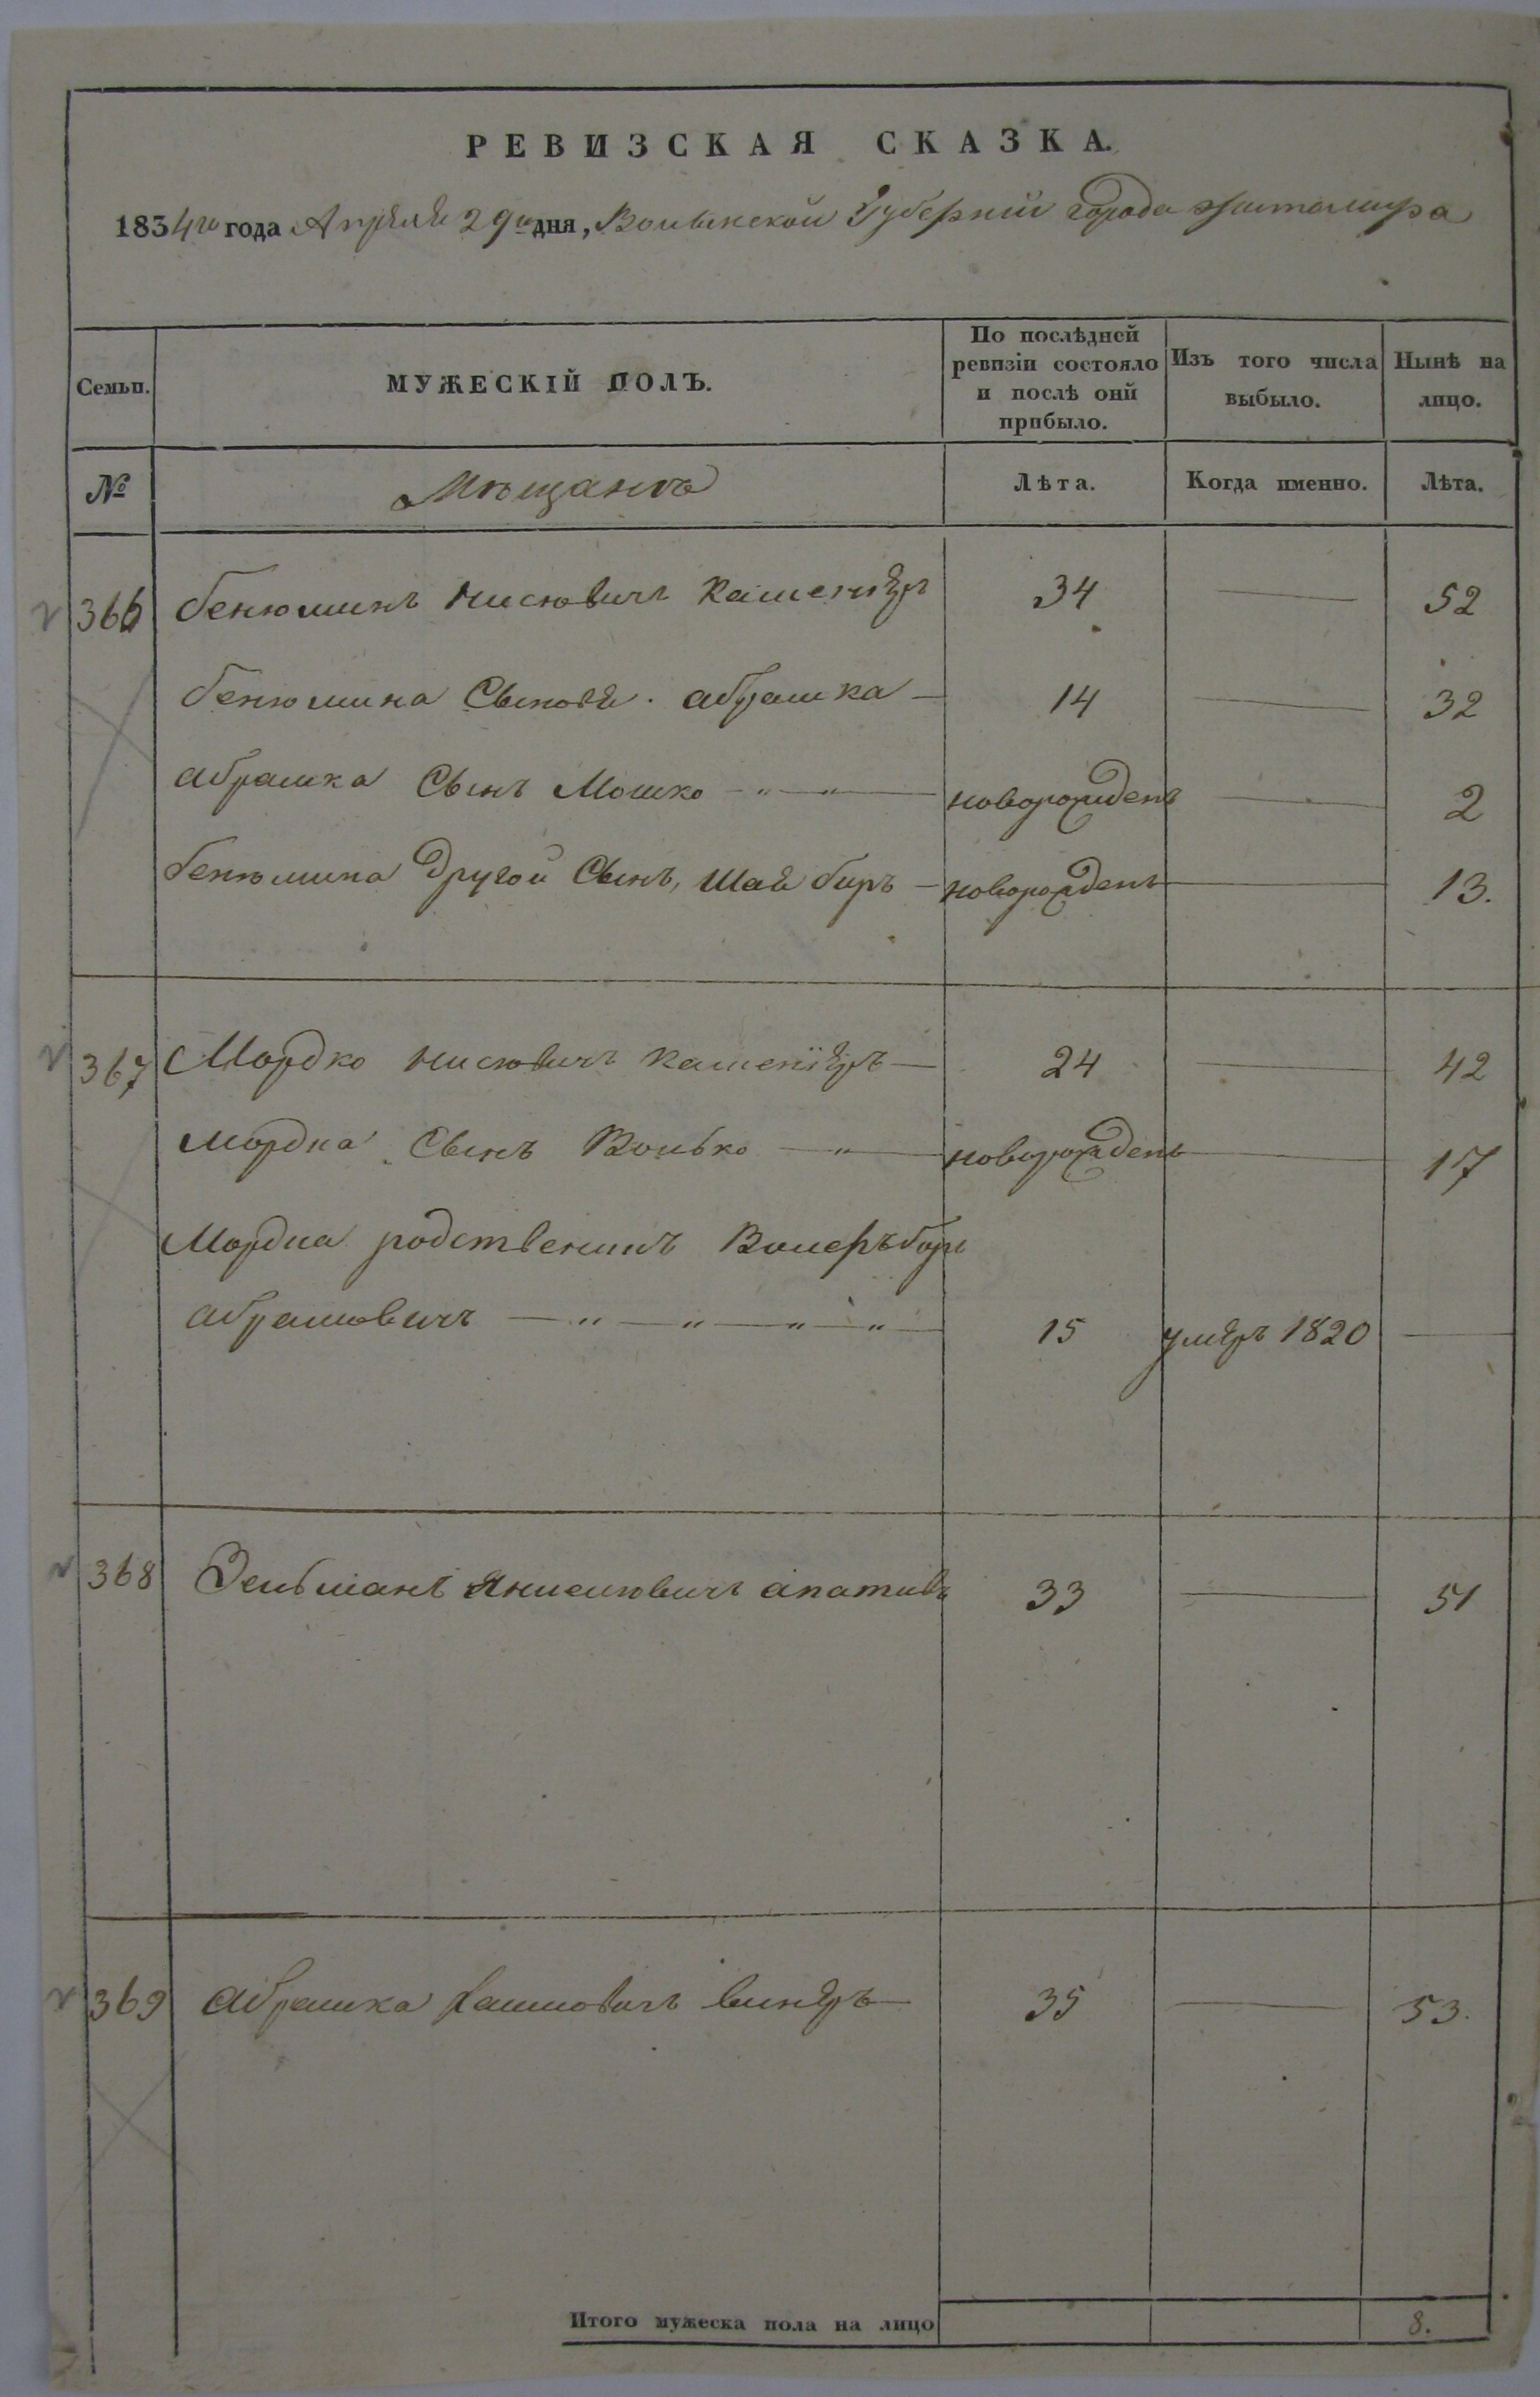 РЕВИЗСКАЯ СКАЗКА.
1834го года Апрѣля 29го дня, Волынской Губерніи города житомира
Семьи.
МУЖЕСКІЙ ПОЛЪ.
По послѣдней ревизіи состояло и послѣ оной прибыло.
Изъ того числа выбыло.
Нынѣ на лицо.
№
Мѣщанъ
Лѣта.
Когда именно.
Лѣта.
366 бенюминъ нисювичъ каменѣръ 34 52
бенюмина Сыновя. абрашка 14 32
абрашка Сынъ Мошко новорожденъ 2
бенюмина другой Сынъ, Шая биръ новорожденъ 13.
367 Мордко нисювичъ каменѣръ 24 42
мордка Сынъ Волько новорожденъ 17
Мордка родственикъ
абрамовичъ 15 умѣръ 1820
368 Зельманъ 33 51
369 абрашка винѣръ 35 53.
Итого мужеска пола на лицо 8.